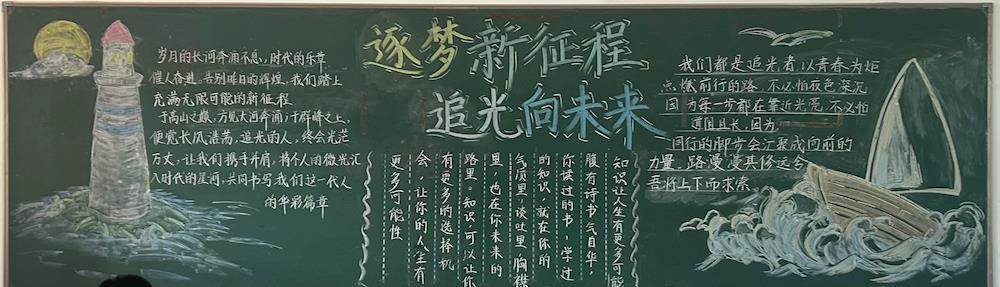 逐梦新征程
追光向未来
岁月的长河奔涌不息，时代的乐章
催人奋进。告别昨日的辉煌，我们踏上
充满无限可能的新征程
于高山之巅，方见大河奔涌；于群峰之上，
便觉长风浩荡，追光的人，终会光芒
万丈，让我们携手并肩，将个人的微光汇
入时代的星河，共同书写我们这一代人
的华彩篇章
知识让人生有更多可能
腹有诗书气自华，
你读过的书，学过
的知识，就在你的
气质里，谈吐里，胸襟
里，也在你未来的
路里。知识可以让你
有更多的选择机
会，让你的人生有
更多可能性
我们都是追光者，以青春为炬
点燃前行的路，不必怕夜色深沉
因为每一步都在靠近光亮，不必怕
道阻且长，因为
同行的脚步会汇聚成向前的
力量，路漫漫其修远兮
吾将上下而求索。